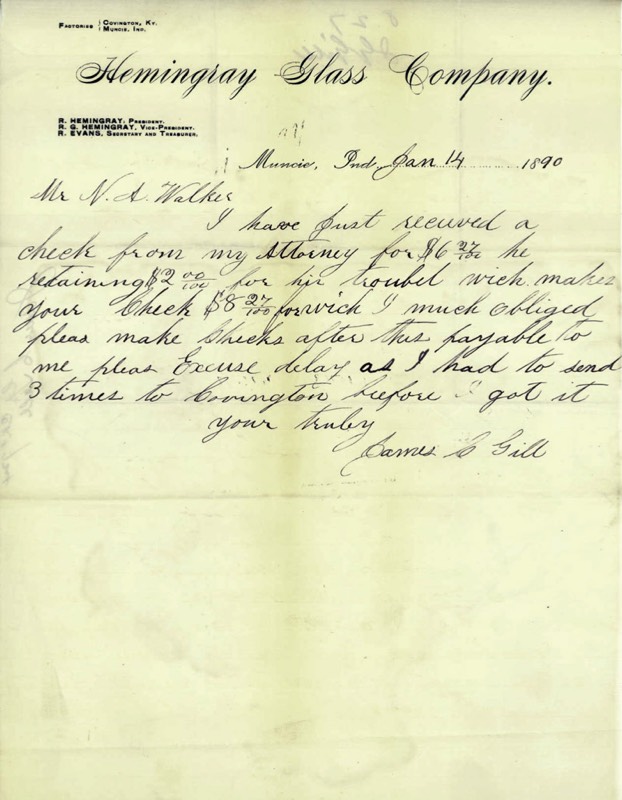 Factories { Covington, Ky.
Muncie, Ind.
Hemingray Glass Company.
R. Hemingray, President.
R. G. Hemingray, Vice-President.
R. Evans, Secretary and Treasurer.
Muncie, Ind. Jan 14 1890
Mr N. A. Walker
I have Just recuved a
check from my Attorney for $6 27/100 he
retaining $2 00/100 for his troubel wich makes
your Check $8 27/100 for wich I much obliged
pleas make Checks after this payable to
me pleas Excuse delay as I had to send
3 times to Covington beefore I got it
your truly
James C Gill